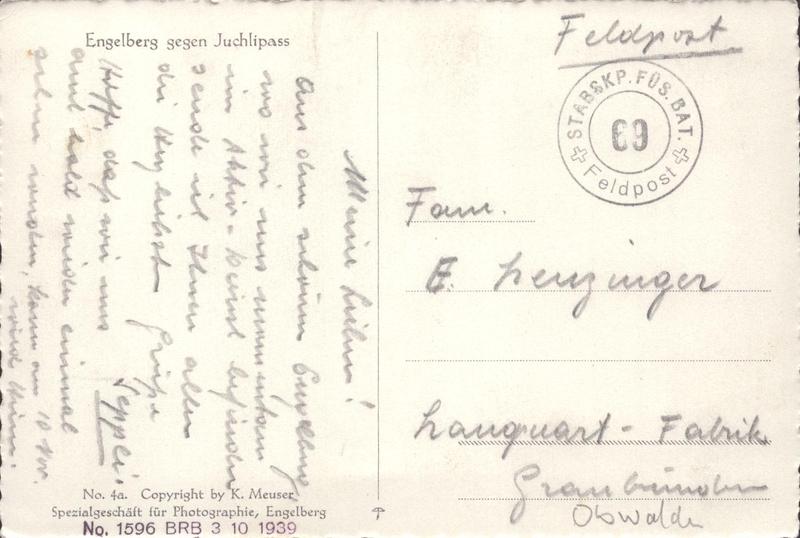 Engelberg gegen Juchlipass
Meine Lieben!
Aus dem schönen Engelberg
wo wir uns momentan
im Aktiv-Dienst befinden
sende ich Ihnen allen
die herzlichsten Grüße
Hoffe, daß wir uns
bald wieder einmal
sehen werden, 10 Nov.
Seppli.
No. 4a. Copyright by K. Meuser
Spezialgeschäft für Photographie, Engelberg
No. 1596 BRB 3 10 1939
Feldpost
STABSKP. FÜS. BAT.
69
Feldpost
Fam.
E. Lenzinger
Lanquart - Fabrik
Graubünden
Obwalden